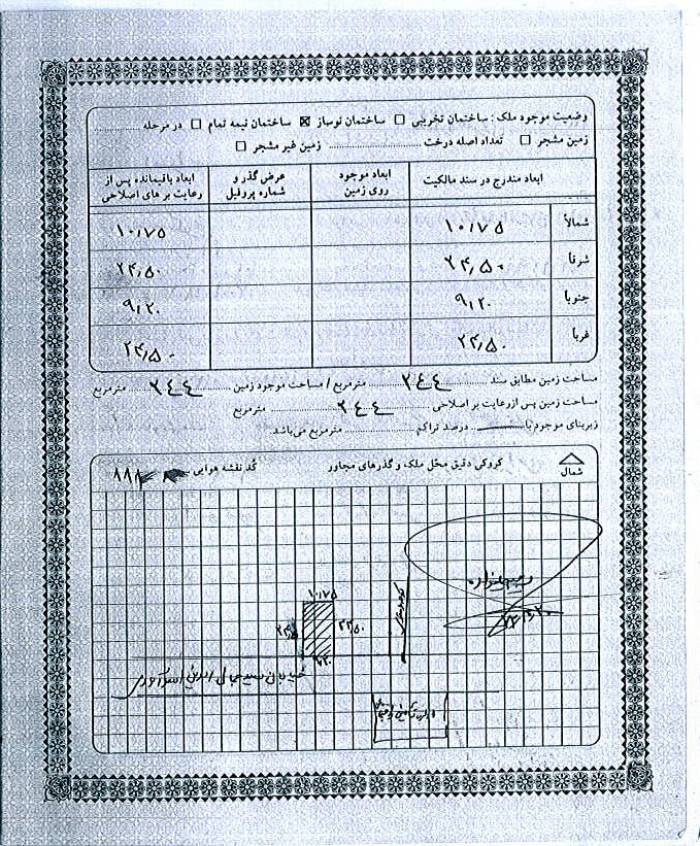 وضعیت موجود ملک : ساختمان تخریبی ☐ ساختمان نوساز ☒ ساختمان نیمه تمام ☐ در مرحله ..........
زمین مشجر ☐ تعداد اصله درخت .......... زمین غیر مشجر ☐
ابعاد مندرج در سند مالکیت ابعاد موجود روی زمین عرض گذر و شماره پروفیل ابعاد باقیمانده پس از رعایت بر های اصلاحی
شمالاً ۱۰/۷۵ ۱۰/۷۵
شرقاً ۲۴/۵۰ ۲۴/۵۰
جنوباً ۹/۲۰ ۹/۲۰
غرباً ۲۴/۵۰ ۲۴/۵۰
مساحت زمین مطابق سند ۲۴۴ مترمربع / مساحت موجود زمین ۲۴۴ مترمربع
مساحت زمین پس از رعایت بر اصلاحی ۲۴۴ مترمربع
زیربنای موجود با درصد تراکم .......... مترمربع می‌باشد.
شمال
کروکی دقیق محل ملک و گذرهای مجاور
کد نقشه هوایی
۱۰/۷۵
۹/۲۰
خیابان سید جمال الدین اسدآبادی